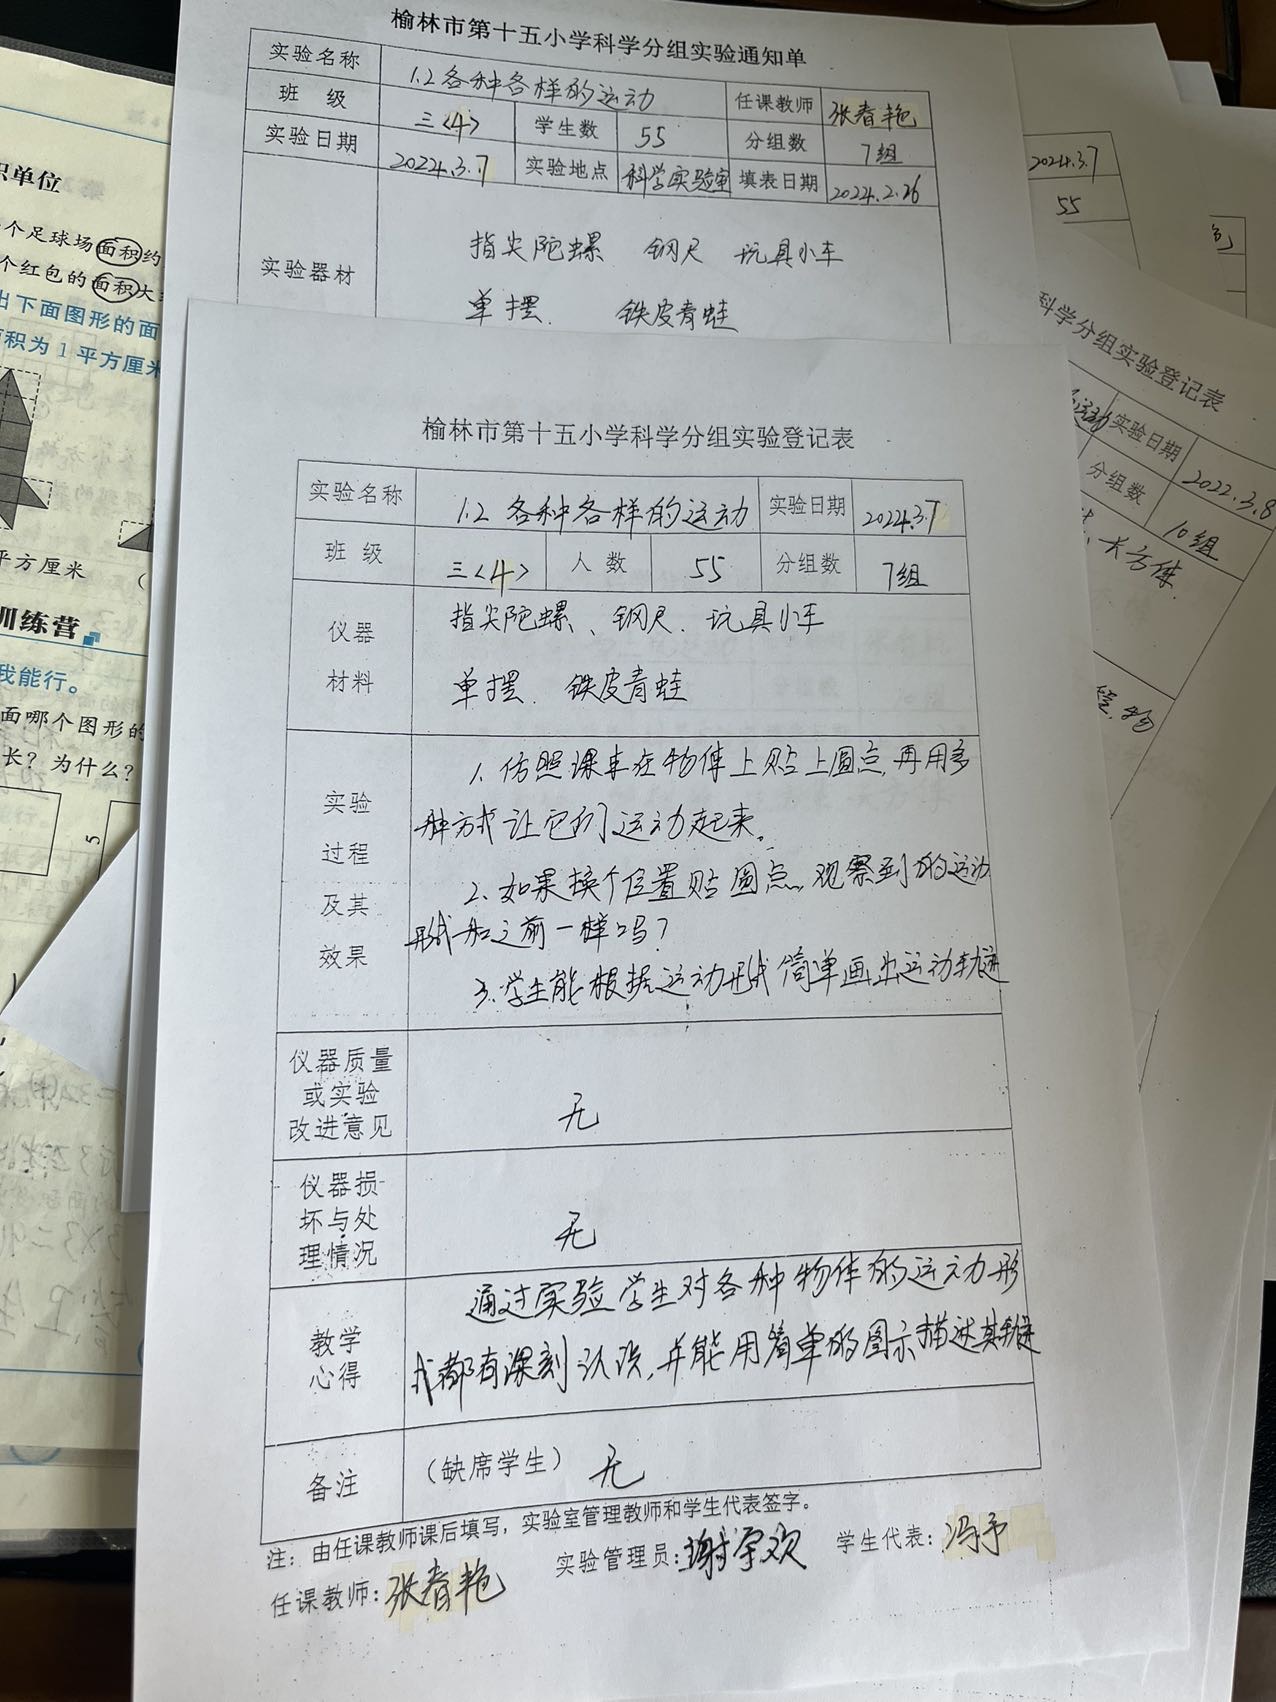 榆林市第十五小学科学分组实验通知单
实验名称 1.2各种各样的运动 任课教师 张春艳
班 级 三<4> 学生数 55 分组数 7组
实验日期 2024.3.7 实验地点 科学实验室 填表日期 2024.2.26
实验器材 指尖陀螺 钢尺 玩具小车
单摆. 铁皮青蛙
榆林市第十五小学科学分组实验登记表
实验名称 1.2 各种各样的运动 实验日期 2024.3.7
班 级 三<4> 人 数 55 分组数 7组
仪器
材料
指尖陀螺、钢尺.玩具小车
单摆. 铁皮青蛙
实验
过程
及其
效果
1.仿照课本在物体上贴上圆点,再用多
种方式让它们运动起来。
2.如果换个位置贴圆点,观察到的运动
形式和之前一样吗?
3.学生能根据运动形式简单画出运动轨迹
仪器质量
或实验
改进意见
无
仪器损
坏与处
理情况
无
教学
心得
通过实验学生对各种物体的运动形
式都有深刻认识,并能用简单的图示描述其轨迹
备注 (缺席学生) 无
注:由任课教师课后填写,实验室管理教师和学生代表签字。
任课教师:张春艳 实验管理员:谢学欢 学生代表:冯予
2024.3.7
55
科学分组实验登记表
实验日期 2022.3.8
分组数 10组
长方体.
织单位
个足球场面积约
个红包的面积大
出下面图形的面
面积为1平方厘米
平方厘米 (
训练营
我能行。
面哪个图形的
长?为什么?
5